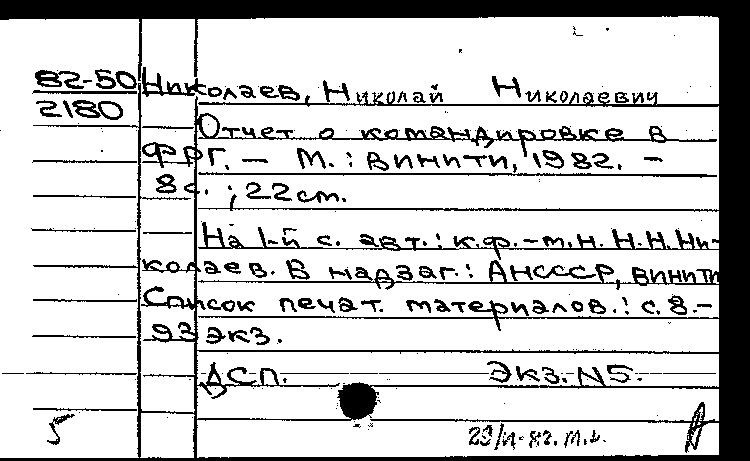 82-50 Николаев, Николай Николаевич
2180
Отчет о командировке в
ФРГ. — М.: ВИНИТИ, 1982. —
8с. ; 22 cm.
На 1-й с. авт.: к.ф.-м.н. Н.Н. Ни-
колаев. В надзаг.: АНСССР, ВИНИТИ
Список печат. материалов.: с. 8.-
93 экз.
ДСП. Экз. N5.
5